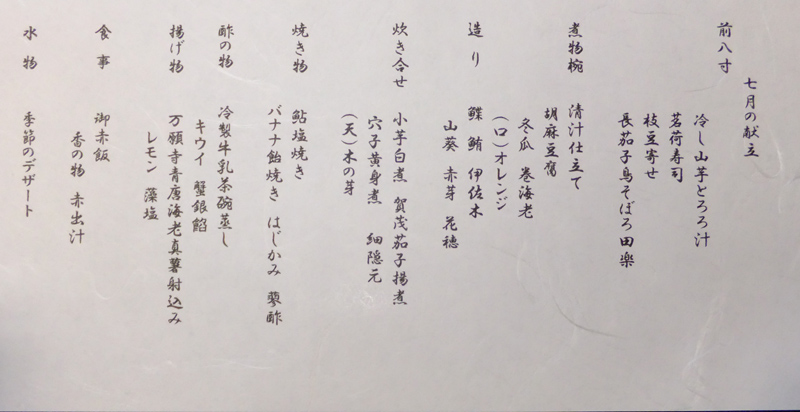 七月の献立
前八寸
冷し山芋とろろ汁
茗荷寿司
枝豆寄せ
長茄子鳥そぼろ田楽
煮物椀
清汁仕立て
胡麻豆腐
冬瓜 巻海老
(口)オレンジ
造り
鰈 鮪 伊佐木
山葵 赤芽 花穂
炊き合せ
小芋白煮 賀茂茄子揚煮
穴子黄身煮 細隠元
(天)木の芽
焼き物
鮎塩焼き
バナナ飴焼き はじかみ 蓼酢
酢の物
冷製牛乳茶碗蒸し
キウイ 蟹銀餡
揚げ物
万願寺青唐海老真薯射込み
レモン 藻塩
食事
御赤飯
香の物 赤出汁
水物
季節のデザート